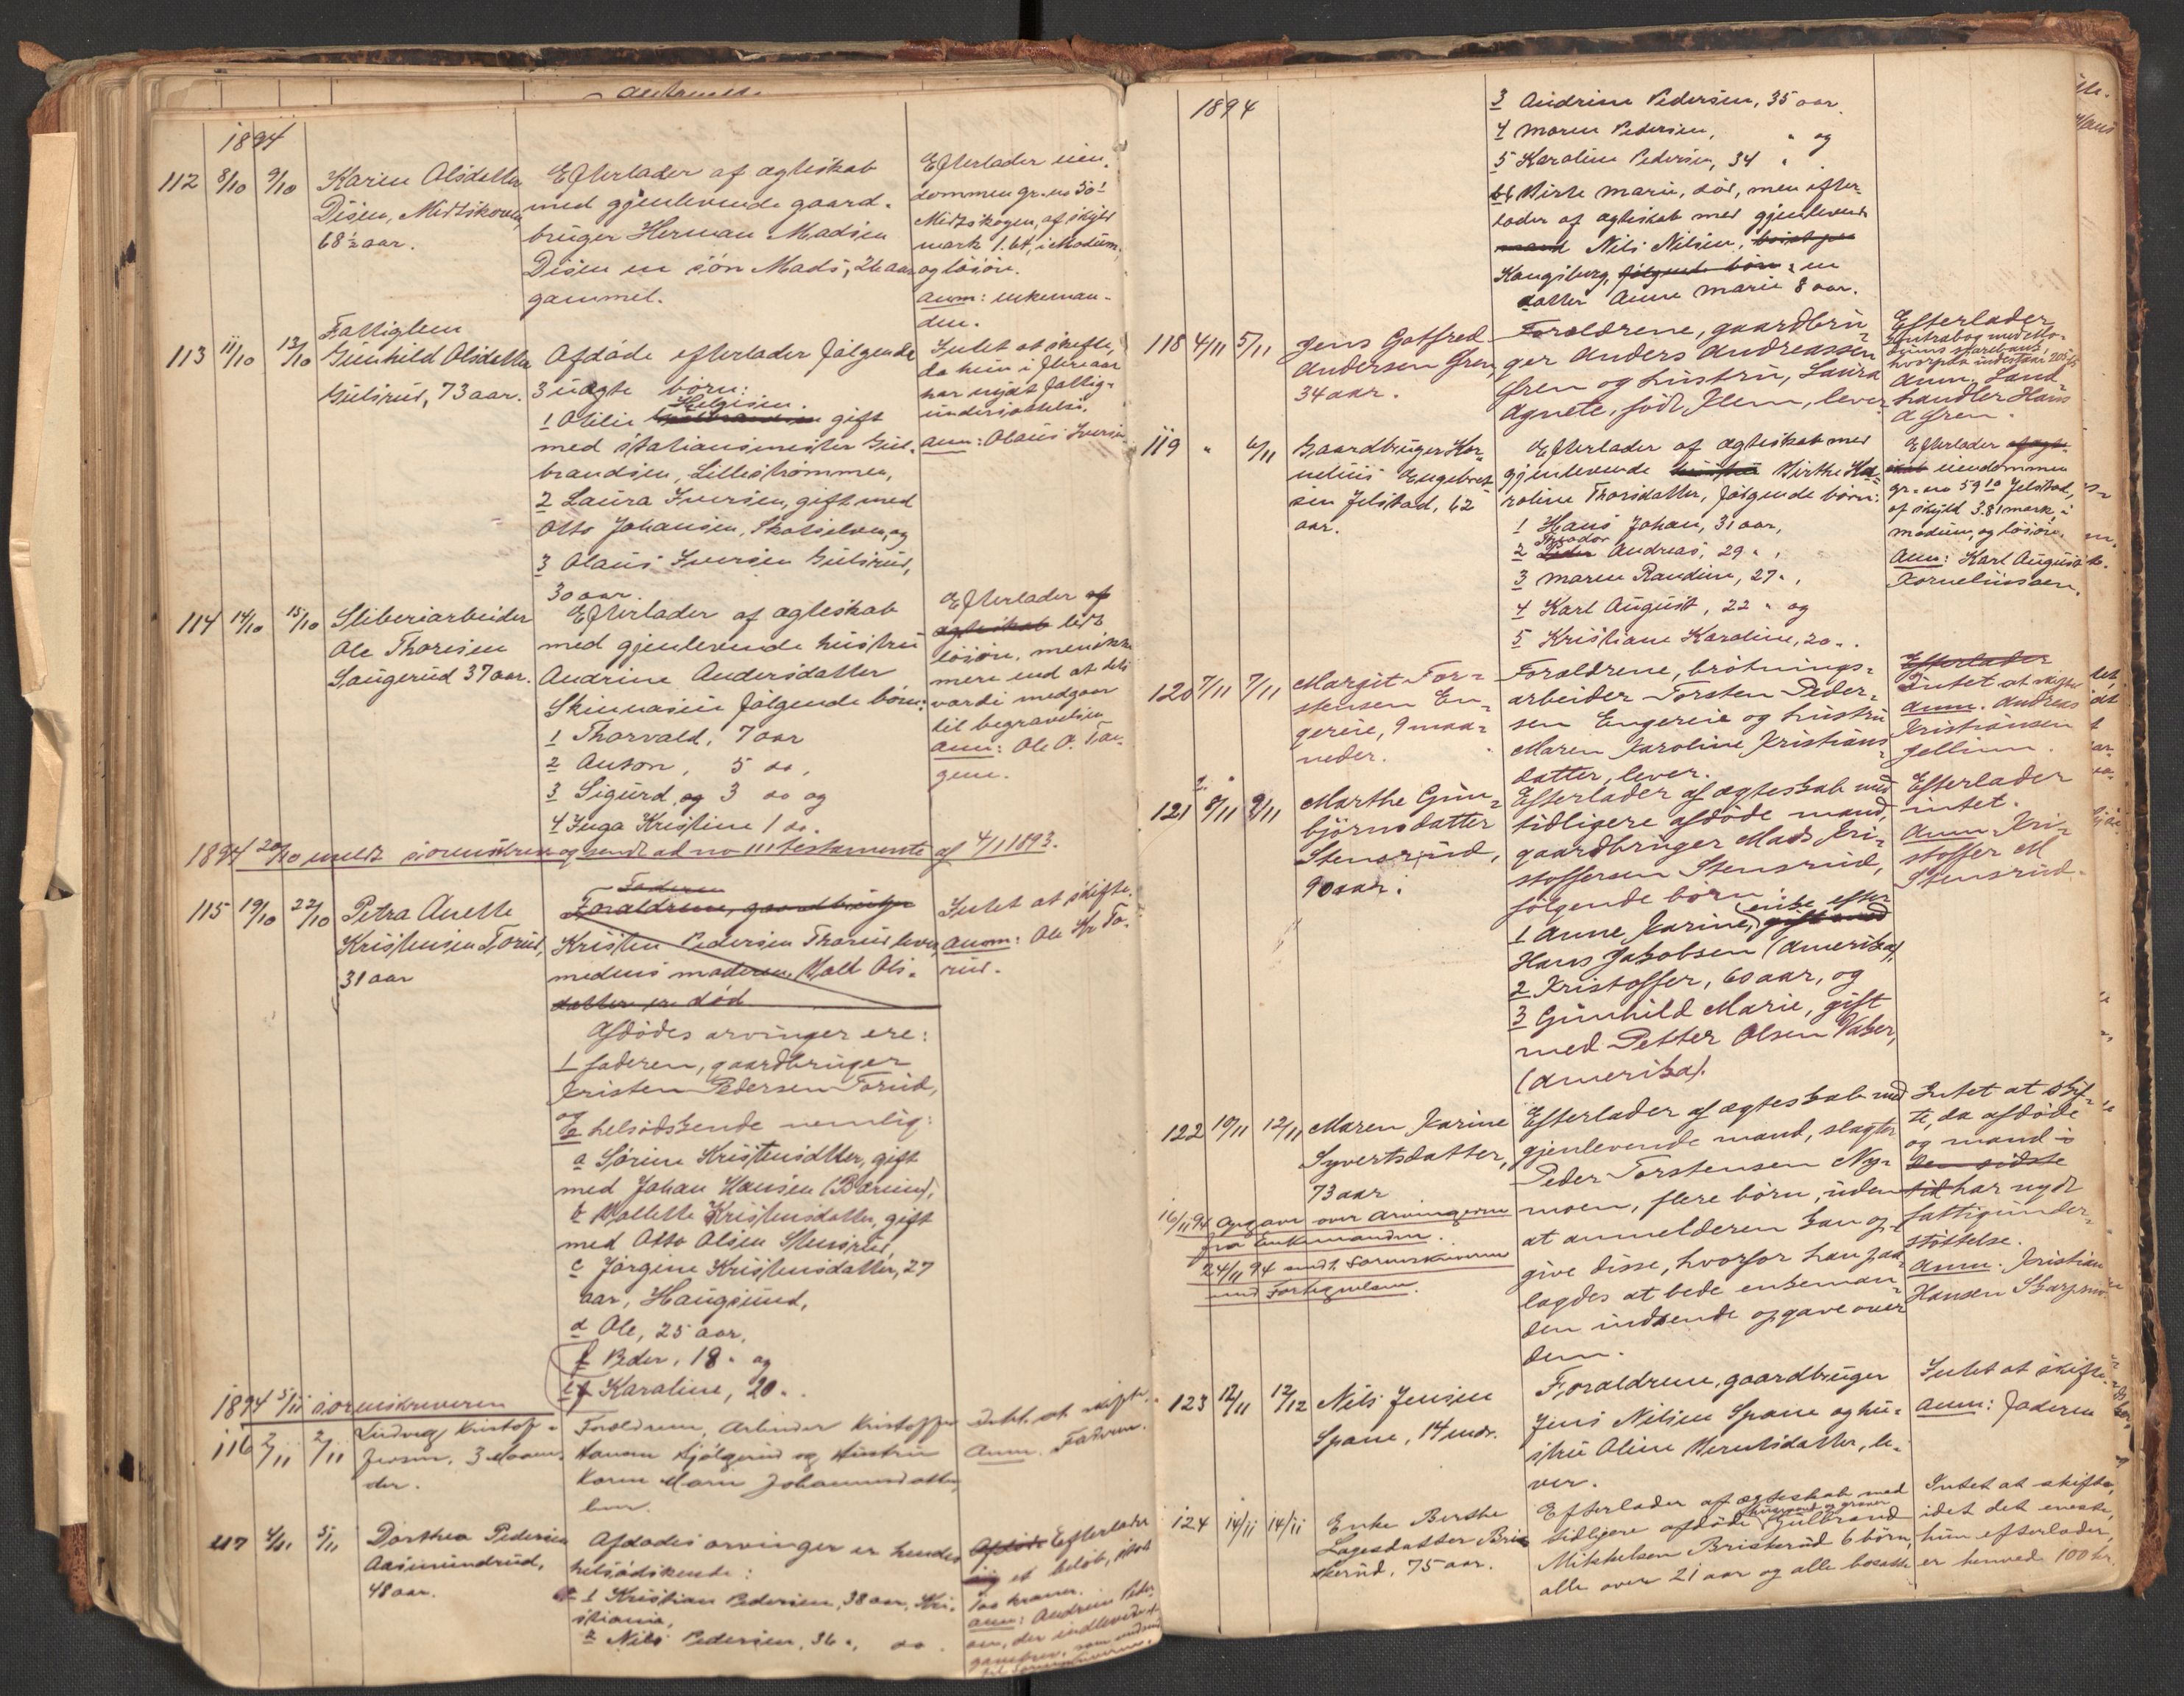 1894
112 8/10 9/10 Karen Olsdatter
Disen, Midtskoven,
68½ aar.
Efterlader af ægteskab
med gjenlevende gaard-
bruger Herman Madsen
Disen en søn Mads, 26 aar
gammel.
Efterlader eien-
dommen gr.-no 50¹
Midtskogen, af skyld
mark 1.64, i Modum,
og løsøre.
Anm: enkeman-
den.
113 11/10 12/10 Fattiglem
Gunhild Olsdatter
Gulsrud, 73 aar.
Afdøde efterlader følgende
3 uægte børn:
Helgesen.
1 Otilie gift
med stationsmester Gul-
brandsen, Lillestrømmen,
2 Laura Iversen, gift med
Otto Johansen, Skotselven, og
3 Olaus Iversen Gulsrud,
30 aar.
Intet at skifte,
da hun i flere aar
har nydt fattig-
understøttelse.
Anm: Olaus Iversen
114 14/10 15/10 Sliberiarbeider
Ole Thoresen
Saugerud 37 aar.
Efterlader af ægteskab
med gjenlevende hustru
Andrine Andersdatter
følgende børn:
1 Thorvald, 7 aar
2 Anton, 5 do,
3 Sigurd, og 3 do og
4 Inga Kristine 1 do.
Efterlader af
ægteskab lidt
løsøre, men ikke
mere end at dets
værdi medgaar
til begravelsen
Anm: Ole O.
1894 20/10 meldt sorenskriveren og sendt ad no 111 testamente af 4/1 1893.
115 19/10 22/10 Petra Anette
Kristensen Torud,
31 aar
Faderen
Forældrene, gaardbruger
Kristen Pedersen Thorud lever,
medens moderen, Ols-
datter er død
Afdødes arvinger ere:
1 faderen, gaardbruger
Kristen Pedersen Torud,
og
2 helsødskende nemlig:
a Sørine Kristensdatter, gift
med Johan Hansen (Bærum),
b Kristensdatter, gift
med Otto Olsen Stensrud,
c Jørgine Kristensdatter, 27
aar, Haugsund,
d Ole, 25 aar,
f Peder, 18 " og
e Karoline, 20 "
Intet at skifte.
Anm: Ole Kr. To-
rud.
1894 5/11 sorenskriveren
116 2/11 2/11 Ludvig Kristof-
fersen, 3 Maane-
der.
Forældrene, Arbeider Kristoffer
Hansen og Hustru
Karen Marie Johannesdatter,
lever.
Intet at skifte.
Anm. Faderen.
117 4/11 5/11 Dorthea Pedersen
Aasmundrud,
48 aar.
Afdødes arvinger er hendes
helsødskende:
1 Kristian Pedersen, 38 aar, Kri-
stiania,
2 Nils Pedersen, 36 ", do.
Afdøde Efterlader
et beløb, stort
100 kroner.
Anm: Andrine Peder-
sen, der indleverede
1894
3 Andrine Pedersen, 35 aar
4 Maren Pedersen, " og
5 Karoline Pedersen, 34 "
6 Birte Marie, død, men efter-
lader af ægteskab med gjenlevende
mand Nils Nilsen,
Kongsberg, følgende børn: en
datter Anne Marie 8 aar.
118 4/11 5/11 Jens Gotfred
Andersen Gren,
34 aar.
Forældrene, gaardbru-
ger Anders Andreassen
Gren og hustru, Laura
Agnete, født Klem, lever
Efterlader
kontrabog med Mo-
dums sparebank,
hvorpaa indestaar 205
Anm. Land-
handler Hans
A Gren.
119 " 6/11 Gaardbruger Kor-
nelius Engebret-
sen Jelstad, 62
aar.
Efterlader af ægteskab med
gjenlevende hustru Birthe Ka-
roline Thorsdatter, følgende børn:
1 Hans Johan, 31 aar,
Theodor
2 Peder Andreas, 29 " ,
3 Maren Randine, 27 " ,
4 Karl August, 22 " og
5 Kristiane Karoline, 20 " .
Efterlader af ægte-
skab eiendommen
gr.-no 59¹⁰ Jelstad,
af skyld 3.81 mark, i
Modum, og løsøre.
Anm: Karl August
Korneliussen.
120 7/11 7/11 Margit Tor-
stensen En-
gereie, 9 maa-
neder.
Forældrene, brøtnings-
arbeider Torsten Peder-
sen Engereie og hustru
Maren Karoline Kristians-
datter, lever.
Efterlader
Intet at skifte
Anm. Andreas
Kristiansen
Gellium.
121 8/11 9/11 Marthe Gun-
bjørnsdatter
Stensrud,
90 aar.
Efterlader af ægteskab med
tidligere afdøde mand,
gaardbruger Mads Kri-
stoffersen Stensrud,
følgende børn:
1 Anne Karine, enke efter gift med
Hans Jakobsen (Amerika),
2 Kristoffer, 60 aar, og
3 Gunhild Marie, gift
med Petter Olsen Vaker,
(Amerika).
Efterlader
intet.
Anm. Kri-
stoffer M
Stensrud.
122 10/11 12/11 Maren Karine
Syvertsdatter,
73 aar
Efterlader af ægteskab med
gjenlevende mand, slagter
Peder Torstensen Ny-
moen, flere børn, uden
at anmelderen kan op-
give disse, hvorfor han paa-
lagdes at bede enkeman-
den indsende opgave over
dem.
Intet at skif-
te, da afdøde
og mand i
den sidste
tid har nydt
fattigunder-
støttelse.
Anm. Kristian
Hansen
16/11 94 Opgave over arvingerne
fra Enkemanden.
24/11 94 sendt Sorenskriveren
med Fortegnelsen.
123 12/11 12/12 Nils Jensen
Spone, 14 mdr.
Forældrene, gaardbruger
Jens Nilsen Spone og hu-
stru Oline Berntsdatter, le-
ver.
Intet at skifte.
Anm: faderen
124 14/11 14/11 Enke Berthe
Lagesdatter Bris-
kerud, 75 aar.
Efterlader af ægteskab med
tidligere afdøde Gulbrand
Mikkelsen Briskerud 6 børn,
alle over 21 aar og alle bosatte
Intet at skifte,
idet det eneste,
hun efterlader,
er henved 100 kr.